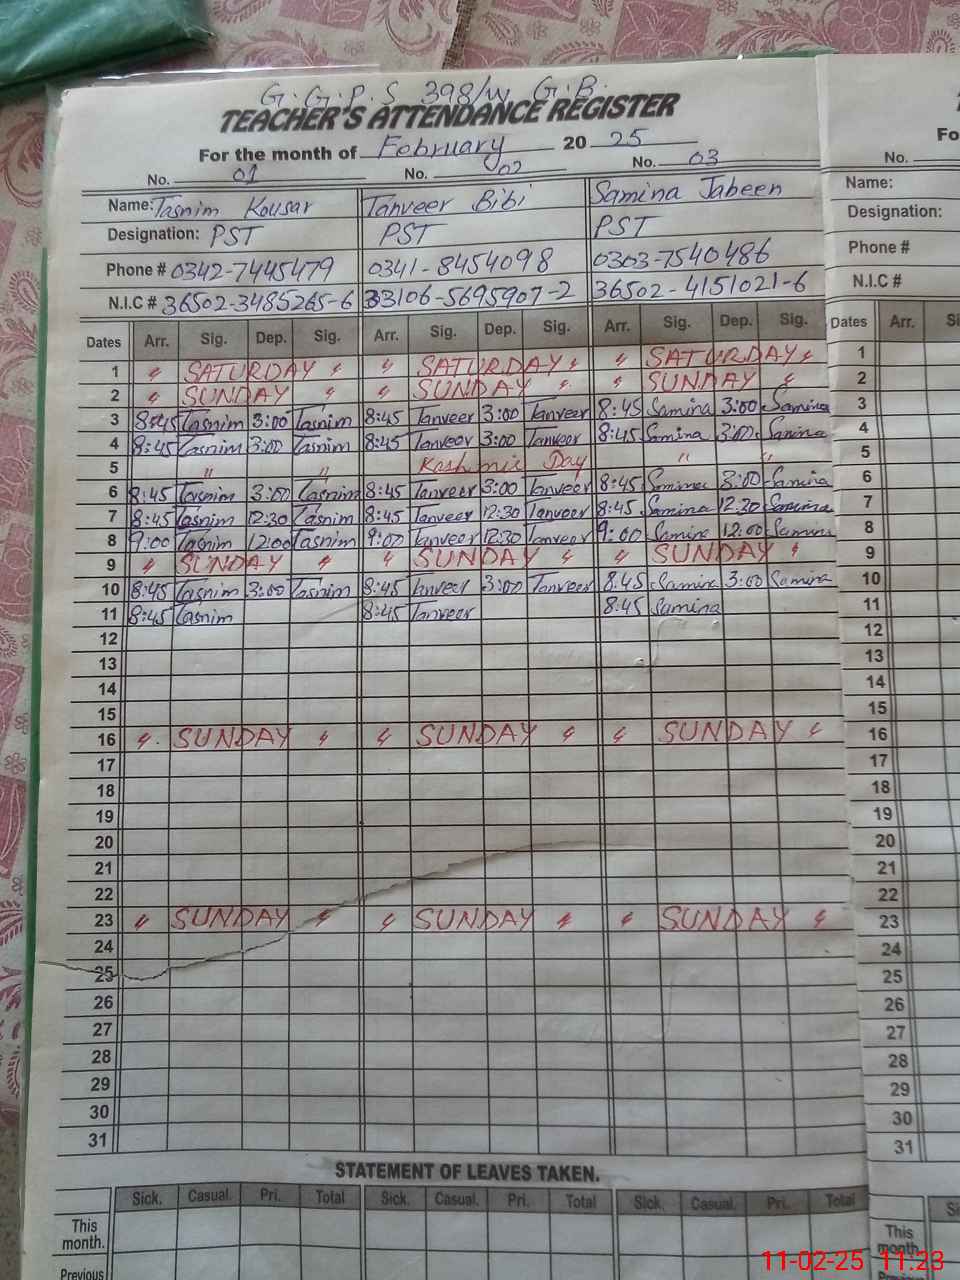 G.G.P.S 398/W G.B.
TEACHER'S ATTENDANCE REGISTER
For the month of February 2025
No. 01 No. 02 No. 03 No.
Name: Tasnim Kousar Tanveer Bibi Samina Jabeen Name:
Designation: PST PST PST Designation:
Phone # 0342-7445479 0341-8454098 0303-7540486 Phone #
N.I.C # 36502-3485265-6 33106-5695907-2 36502-4151021-6 N.I.C #
Dates Arr. Sig. Dep. Sig. Arr. Sig. Dep. Sig. Arr. Sig. Dep. Sig. Dates Arr.
1 " SATURDAY " " SATURDAY " " SATURDAY " 1
2 " SUNDAY " " SUNDAY " " SUNDAY " 2
3 8:45 Tasnim 3:00 Tasnim 8:45 Tanveer 3:00 Tanveer 8:45 Samina 3:00 Samina 3
4 8:45 Tasnim 3:00 Tasnim 8:45 Tanveer 3:00 Tanveer 8:45 Samina 3:00 Samina 4
5 " " Kashmir Day " " 5
6 8:45 Tasnim 3:00 Tasnim 8:45 Tanveer 3:00 Tanveer 8:45 Samina 3:00 Samina 6
7 8:45 Tasnim 12:30 Tasnim 8:45 Tanveer 12:30 Tanveer 8:45 Samina 12:30 Samina 7
8 9:00 Tasnim 12:00 Tasnim 9:00 Tanveer 12:30 Tanveer 9:00 Samina 12:00 Samina 8
9 " SUNDAY " " SUNDAY " " SUNDAY " 9
10 8:45 Tasnim 3:00 Tasnim 8:45 Tanveer 3:00 Tanveer 8:45 Samina 3:00 Samina 10
11 8:45 Tasnim 8:45 Tanveer 8:45 Samina 11
12 12
13 13
14 14
15 15
16 " SUNDAY " " SUNDAY " " SUNDAY " 16
17 17
18 18
19 19
20 20
21 21
22 22
23 " SUNDAY " " SUNDAY " " SUNDAY " 23
24 24
25 25
26 26
27 27
28 28
29 29
30 30
31 31
STATEMENT OF LEAVES TAKEN.
Sick. Casual. Pri. Total Sick. Casual. Pri. Total Sick. Casual. Pri. Total
This month. This month.
Previous
11-02-25 11:23